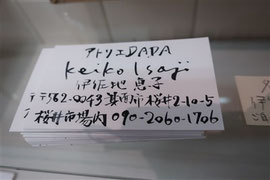 アトリエDADA
Keiko Isaji
伊佐地 恵子
〒562-0043 箕面市桜井2-10-5
桜井市場内 090-2060-1706